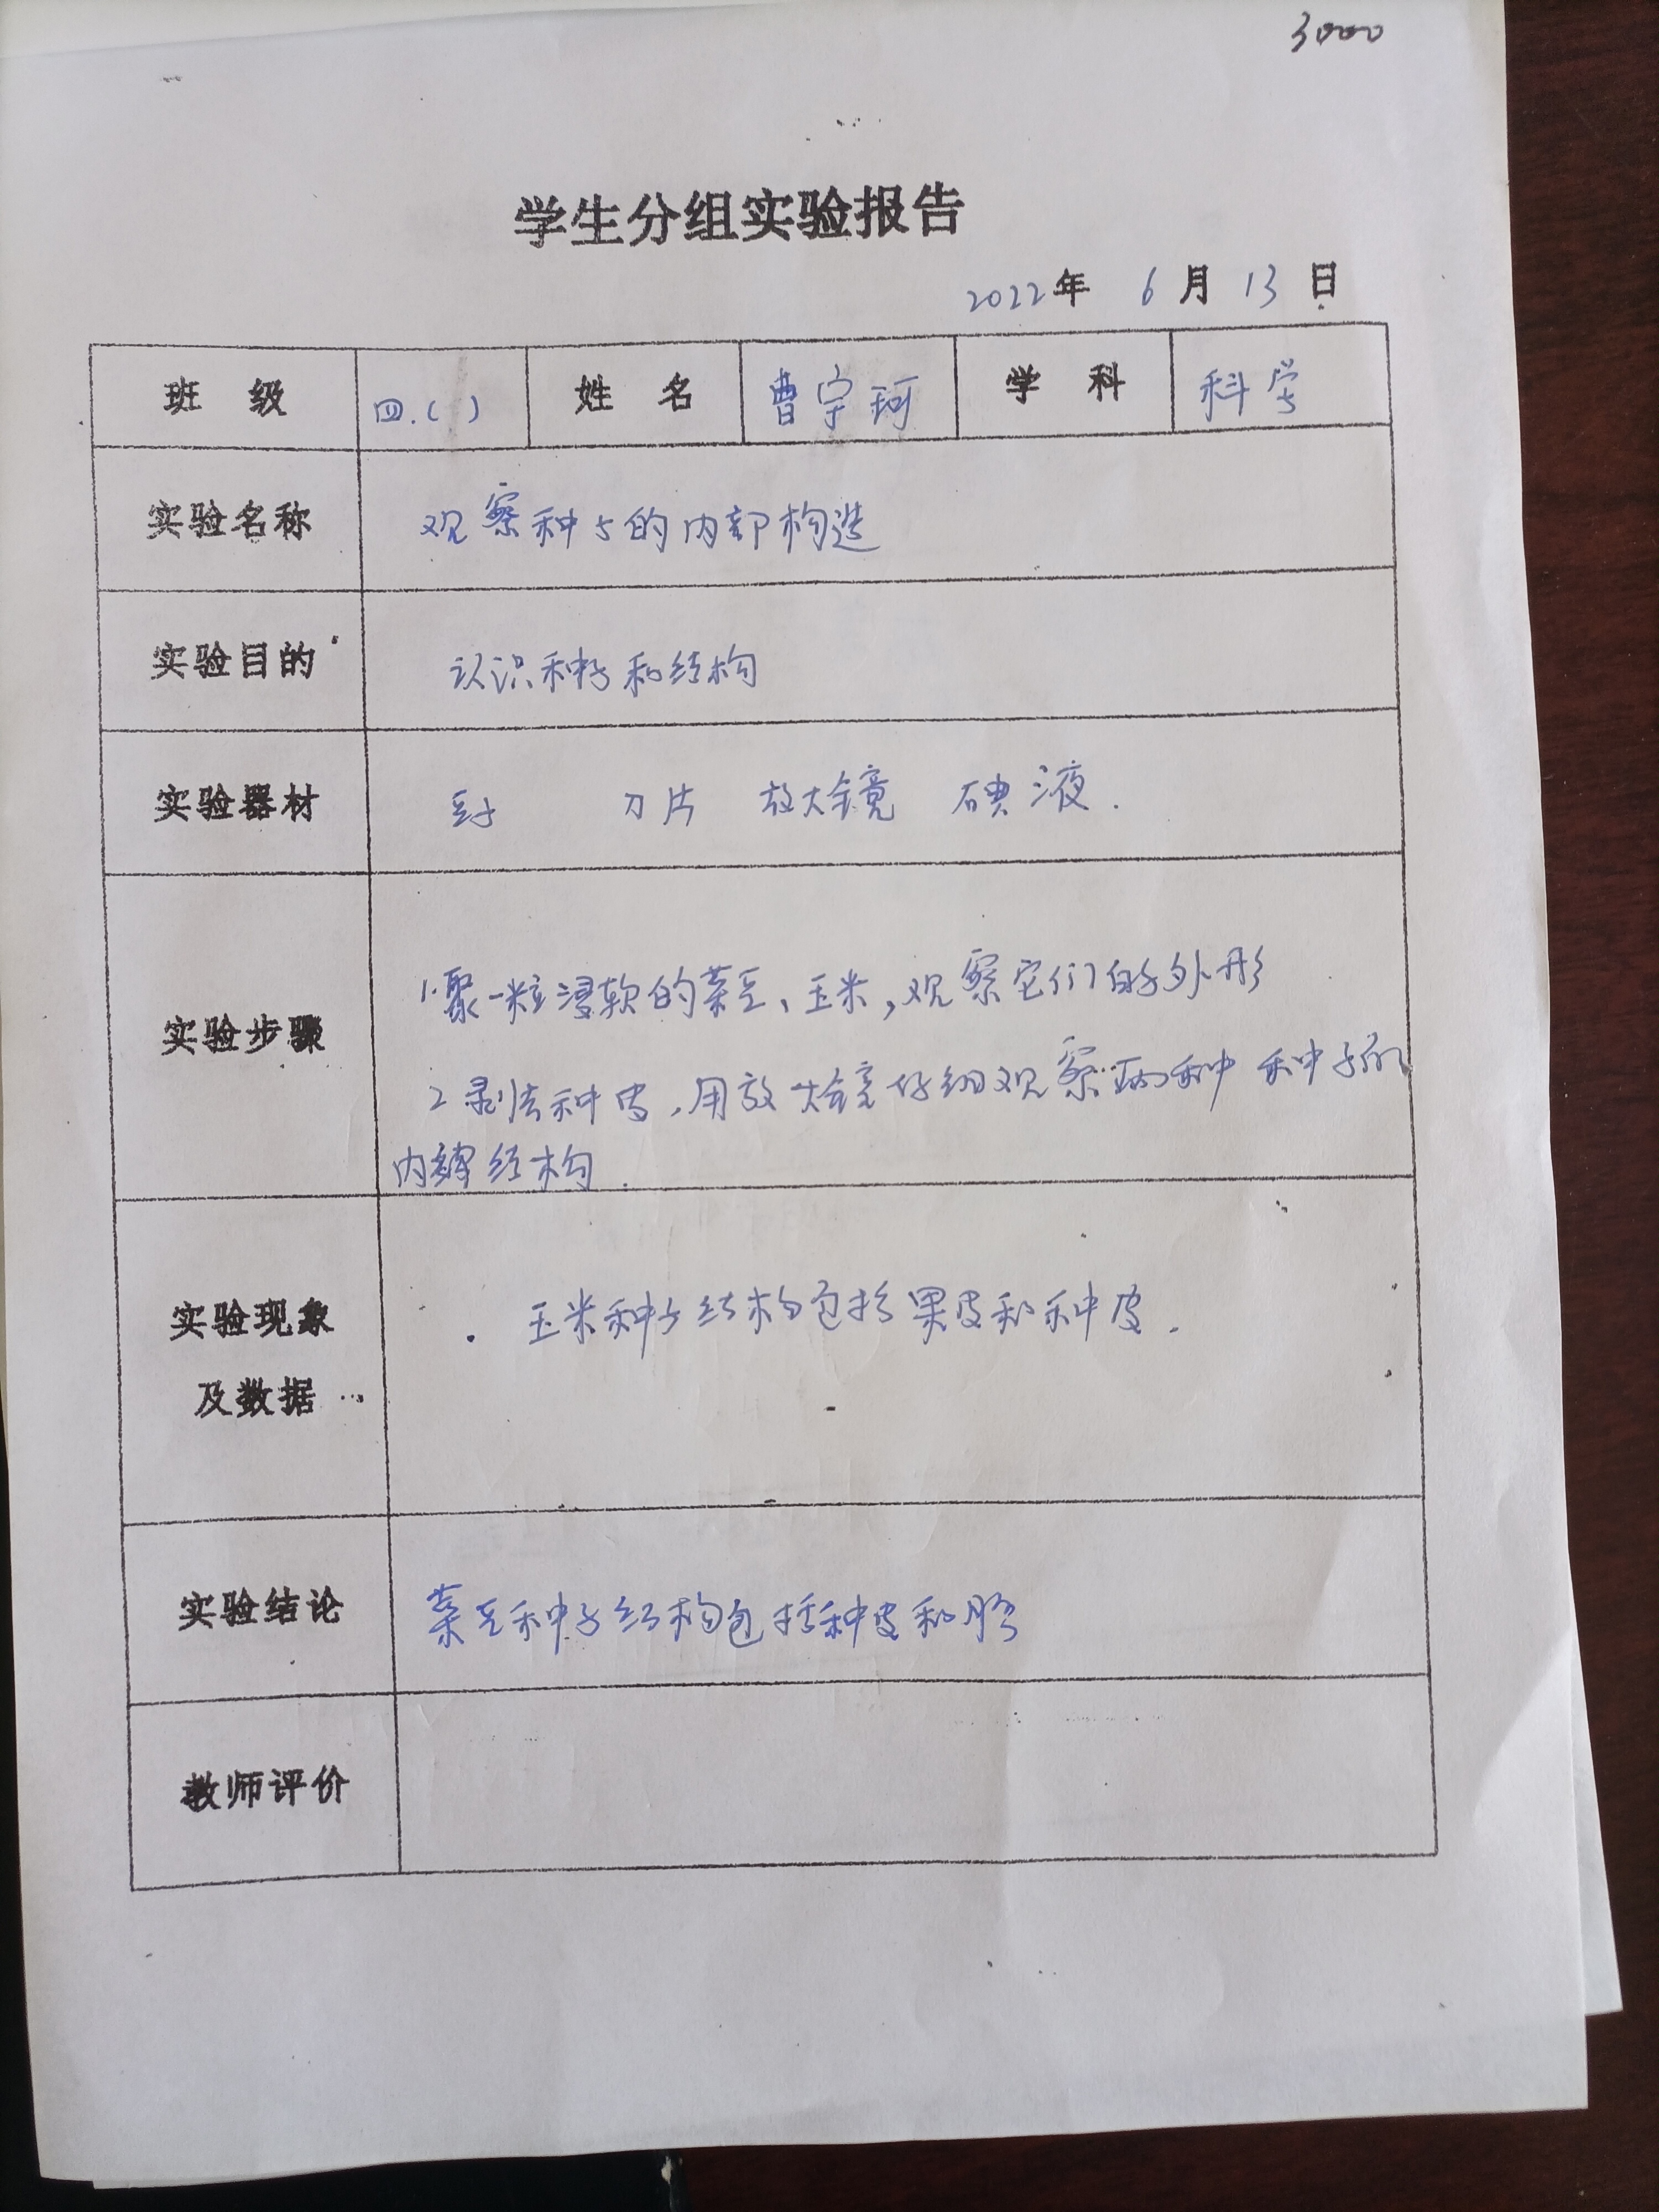 3000
学生分组实验报告
2022年 6月13日
班 级 四.( ) 姓 名 曹宇珂 学 科 科学
实验名称 观察种子的内部构造
实验目的 认识种子和结构
实验器材 刀片 放大镜 碘液.
1.聚一粒浸软的菜豆、玉米,观察它们的外形
实验步骤
2 剥去种皮,用放大镜仔细观察两种种子的
内部结构.
实验现象 玉米种子结构包括果皮和种皮.
及数据
实验结论 菜豆种子结构包括种皮和胚
教师评价